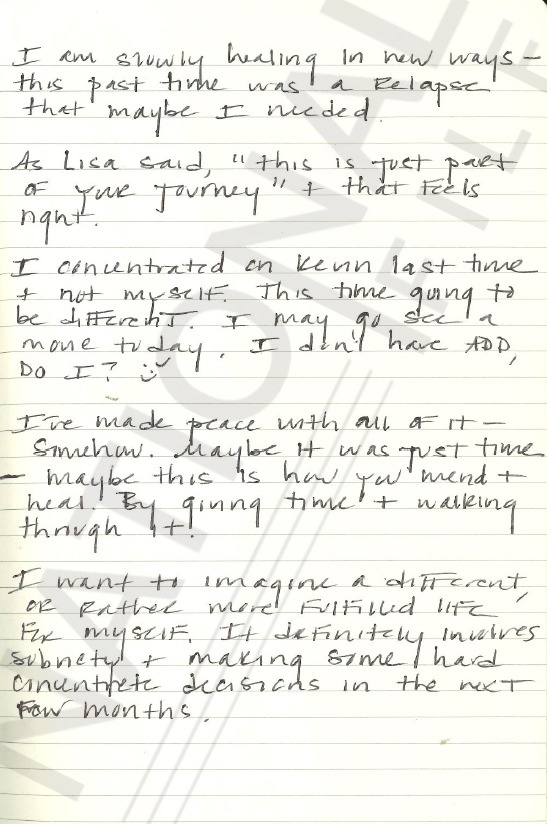 I am slowly healing in new ways –
this past time was a Relapse
that maybe I needed.
As Lisa said, "this is just part
of your journey" + that feels
right.
I concentrated on Kevin last time
+ not myself. This time going to
be different. I may go see a
movie today. I don't have ADD,
Do I?
I've made peace with all of it –
Somehow. Maybe it was just time
– maybe this is how you mend +
heal. By giving time + walking
through it.
I want to imagine a different,
or Rather more fulfilled life
for myself. It definitely involves
sobriety + making some hard
concrete decisions in the next
few months.
NATIONAL
FILE